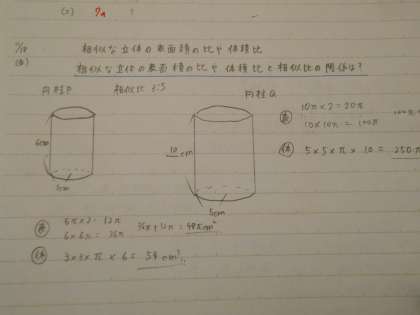 (2)
7/12 相似な立体の表面積の比や体積比
相似な立体の表面積の比や体積比と相似比の関係は?
円柱P 相似比 3:5 円柱Q
6cm
3cm
10 cm
5cm
表 10π×2=20π
10×10π=100π
体 5×5×π×10=250π
表 6π×2=12π
6×6π=36π
36π+12π=48πcm²
体 3×3×π×6=54cm³